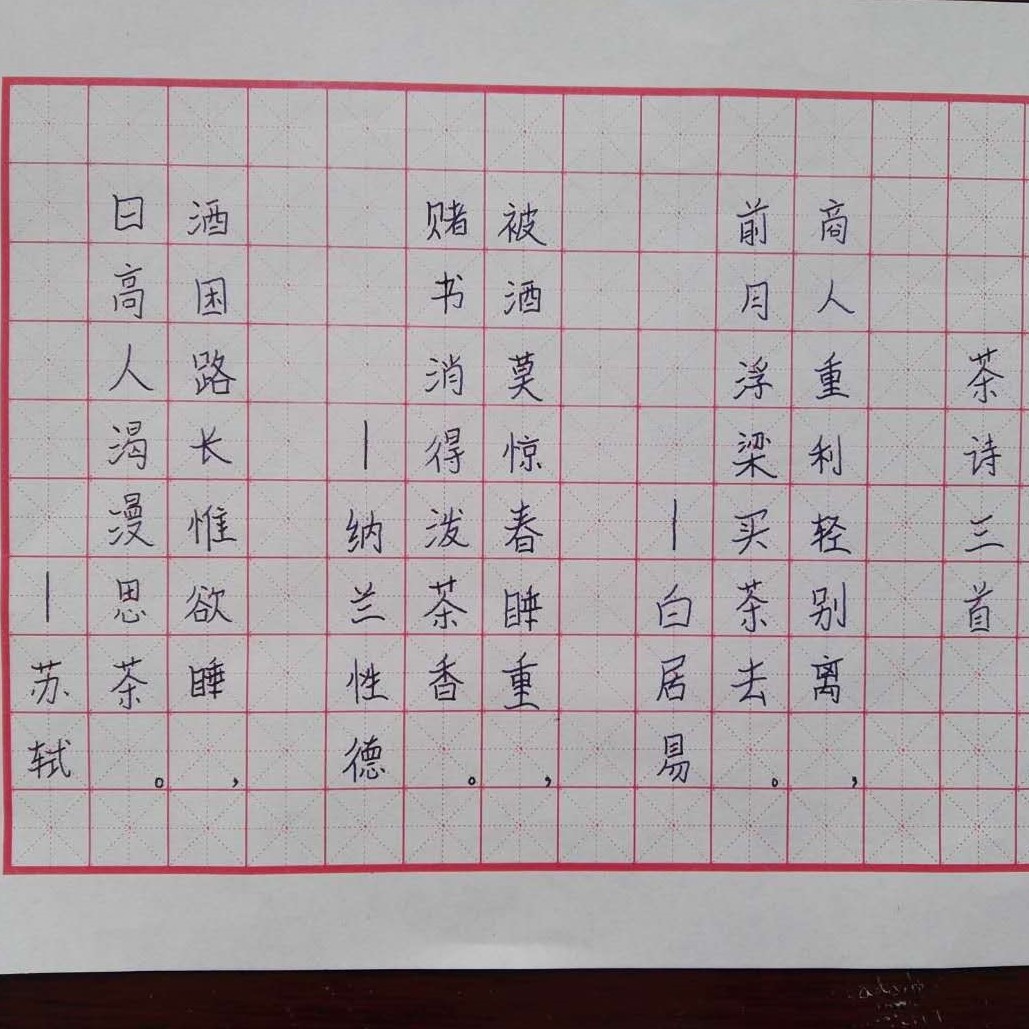 茶诗三首
商人重利轻别离，
前月浮梁买茶去。
—白居易
被酒莫惊春睡重，
赌书消得泼茶香。
—纳兰性德
酒困路长惟欲睡，
日高人渴漫思茶。
—苏轼